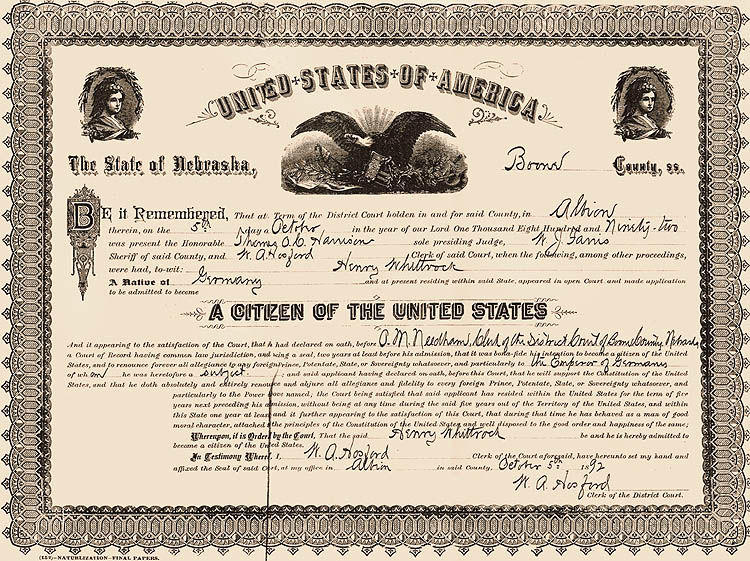 UNITED STATES OF AMERICA
The State of Nebraska, Boone County, ss.
BE it Remembered, That at Term of the District Court holden in and for said County, in Albion
therein, on the 5th day of October in the year of our Lord One Thousand Eight Hundred and Ninety-two
was present the Honorable Thomas O. C. Harrison sole presiding Judge, W. J. Farris
Sheriff of said County, and W. A. Hosford Clerk of said Court, when the following, among other proceedings,
were had, to-wit: Henry Whittrock
A Native of Germany and at present residing within said State, appeared in open Court and made application
to be admitted to become
A CITIZEN OF THE UNITED STATES
And it appearing to the satisfaction of the Court, that he had declared on oath, before O. M. Needham, Clerk of the District Court of Boone County, Nebraska
a Court of Record having common law jurisdiction, and using a seal, two years at least before his admission, that it was bona-fide his intention to become a citizen of the United
States, and to renounce forever all allegiance to any foreign Prince, Potentate, State, or Sovereignty whatsoever, and particularly to the Emperor of Germany
of whom he was heretofore a subject ; and said applicant having declared on oath, before this Court, that he will support the Constitution of the United
States, and that he doth absolutely and entirely renounce and abjure all allegiance and fidelity to every foreign Prince, Potentate, State, or Sovereignty whatsoever, and
particularly to the Power above named; the Court being satisfied that said applicant has resided within the United States for the term of five
years next preceding his admission, without being at any time during the said five years out of the Territory of the United States, and within
this State one year at least; and it further appearing to the satisfaction of this Court, that during that time he has behaved as a man of good
moral character, attached to the principles of the Constitution of the United States and well disposed to the good order and happiness of the same;
Whereupon, it is Ordered by the Court, That the said Henry Whittrock be and he is hereby admitted to
become a citizen of the United States.
In Testimony Whereof I, W. A. Hosford Clerk of the Court aforesaid, have hereunto set my hand and
affixed the Seal of said Court, at my office in Albion in said County, October 5th 1892
W. A. Hosford
Clerk of the District Court.
(157)—NATURLIZATION—FINAL PAPERS.